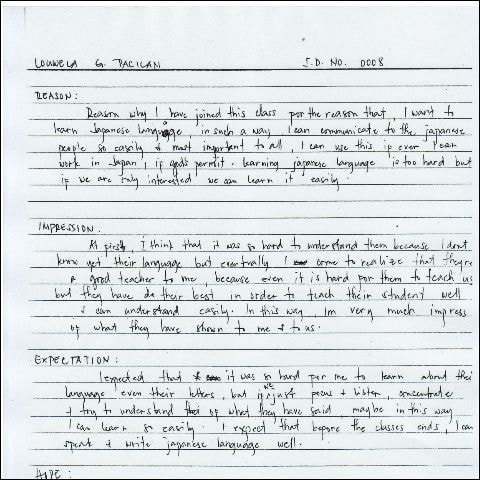 LOUWELA G. PACILAN I.D. NO. 0008
REASON:
Reason why I have joined this class for the reason that, I want to
learn Japanese language, in such a way, I can communicate to the japanese
people so easily & most important to all, I can use this if ever I can
work in Japan, if god's permit. learning japanese language is too hard but
if we are truly interested we can learn it easily.
IMPRESSION:
At first, I think that it was so hard to understand them because I dont
know yet their language but eventually I come to realize that they're
a good teacher to me, because even it is hard for them to teach us
but they have do their best in order to teach their student well
& can understand easily. In this way, Im very much impress
of what they have shown to me & to us.
EXPECTATION:
I expected that it was so hard for me to learn about thei
language even their letters, but if WE just focus & listen, concentrate
& try to understand of what they have said, maybe in this way
I can learn so easily. I expect that before the classes ends, I can
speak & write japanese language well.
HOPE: